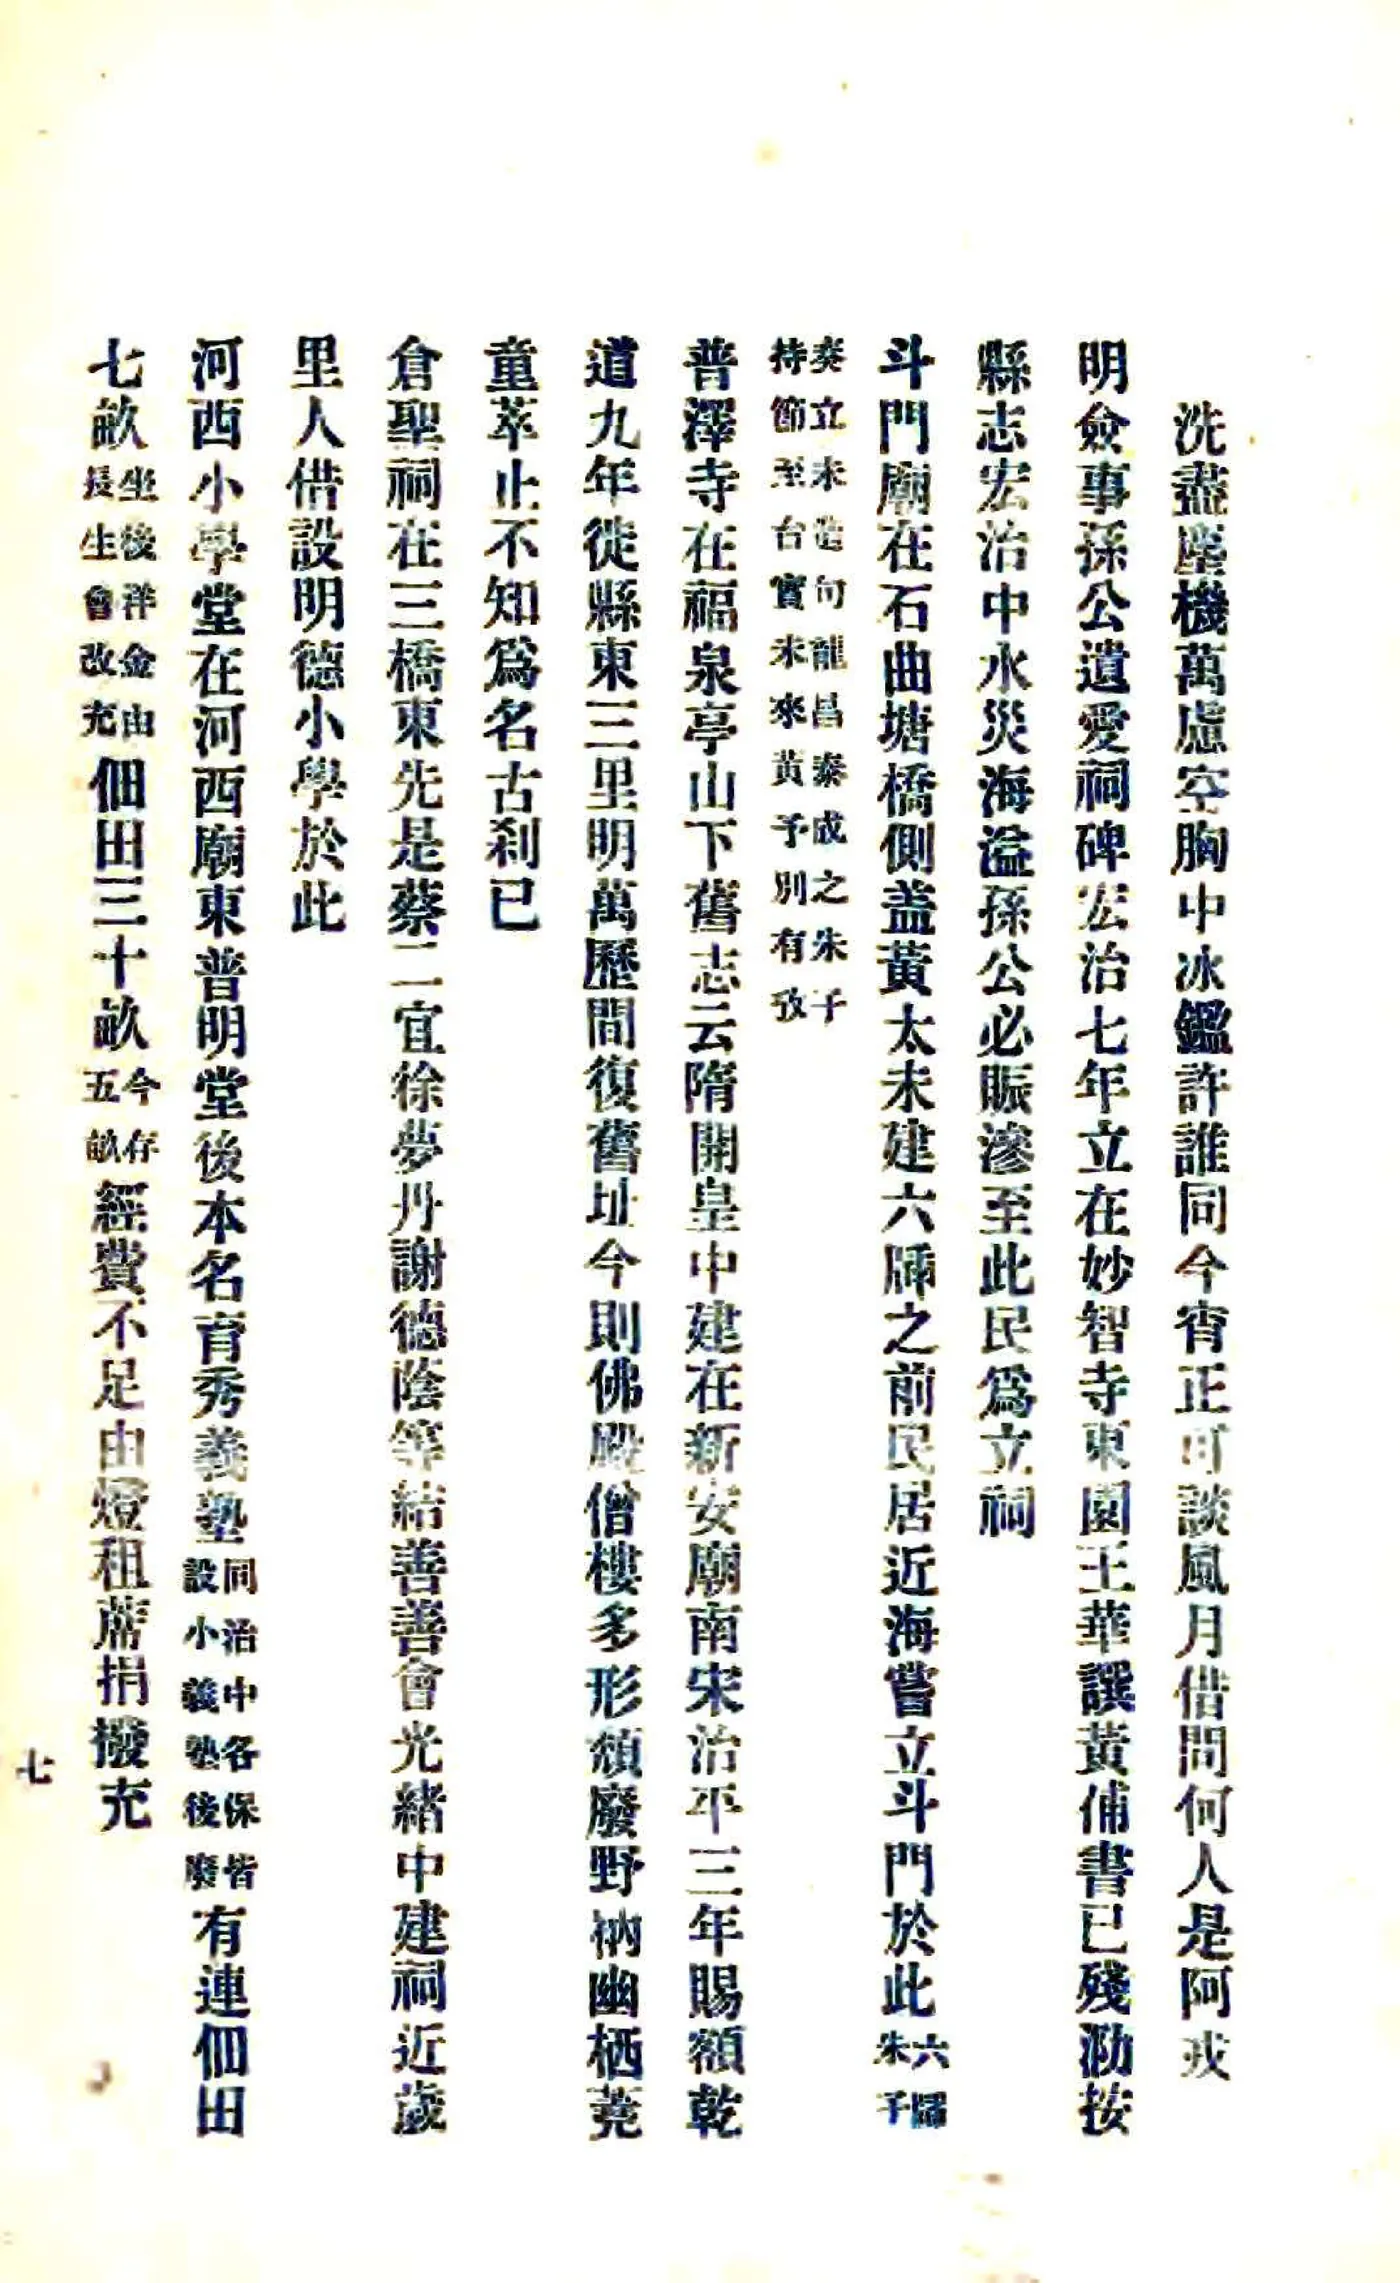 洗盡塵機萬慮空胸中冰鑑許誰同今宵正可談風月借問何人是阿戎
明僉事孫公遺愛祠碑宏治七年立在妙智寺東園王華譔黃俌書已殘泐按
縣志宏治中水災海溢孫公必賑滲至此民爲立祠
斗門廟在石曲塘橋側盖黃太未建六牐之前民居近海嘗立斗門於此六牐朱子
奏立未造句龍昌泰成之朱子持節至台實未來黃予別有攷
普澤寺在福泉亭山下舊志云隋開皇中建在新安廟南宋治平三年賜額乾
道九年徙縣東三里明萬歷間復舊址今則佛殿僧樓多形頹廢野衲幽栖蕘
童萃止不知爲名古刹已
倉聖祠在三橋東先是蔡二宜徐夢丹謝德蔭等結善善會光緒中建祠近歲
里人借設明德小學於此
河西小學堂在河西廟東普明堂後本名育秀義塾同治中各保皆設小義塾後廢有連佃田
七畝坐後洋金由長生會改充佃田三十畝今存五畝經費不足由燈租蓆捐撥充
七